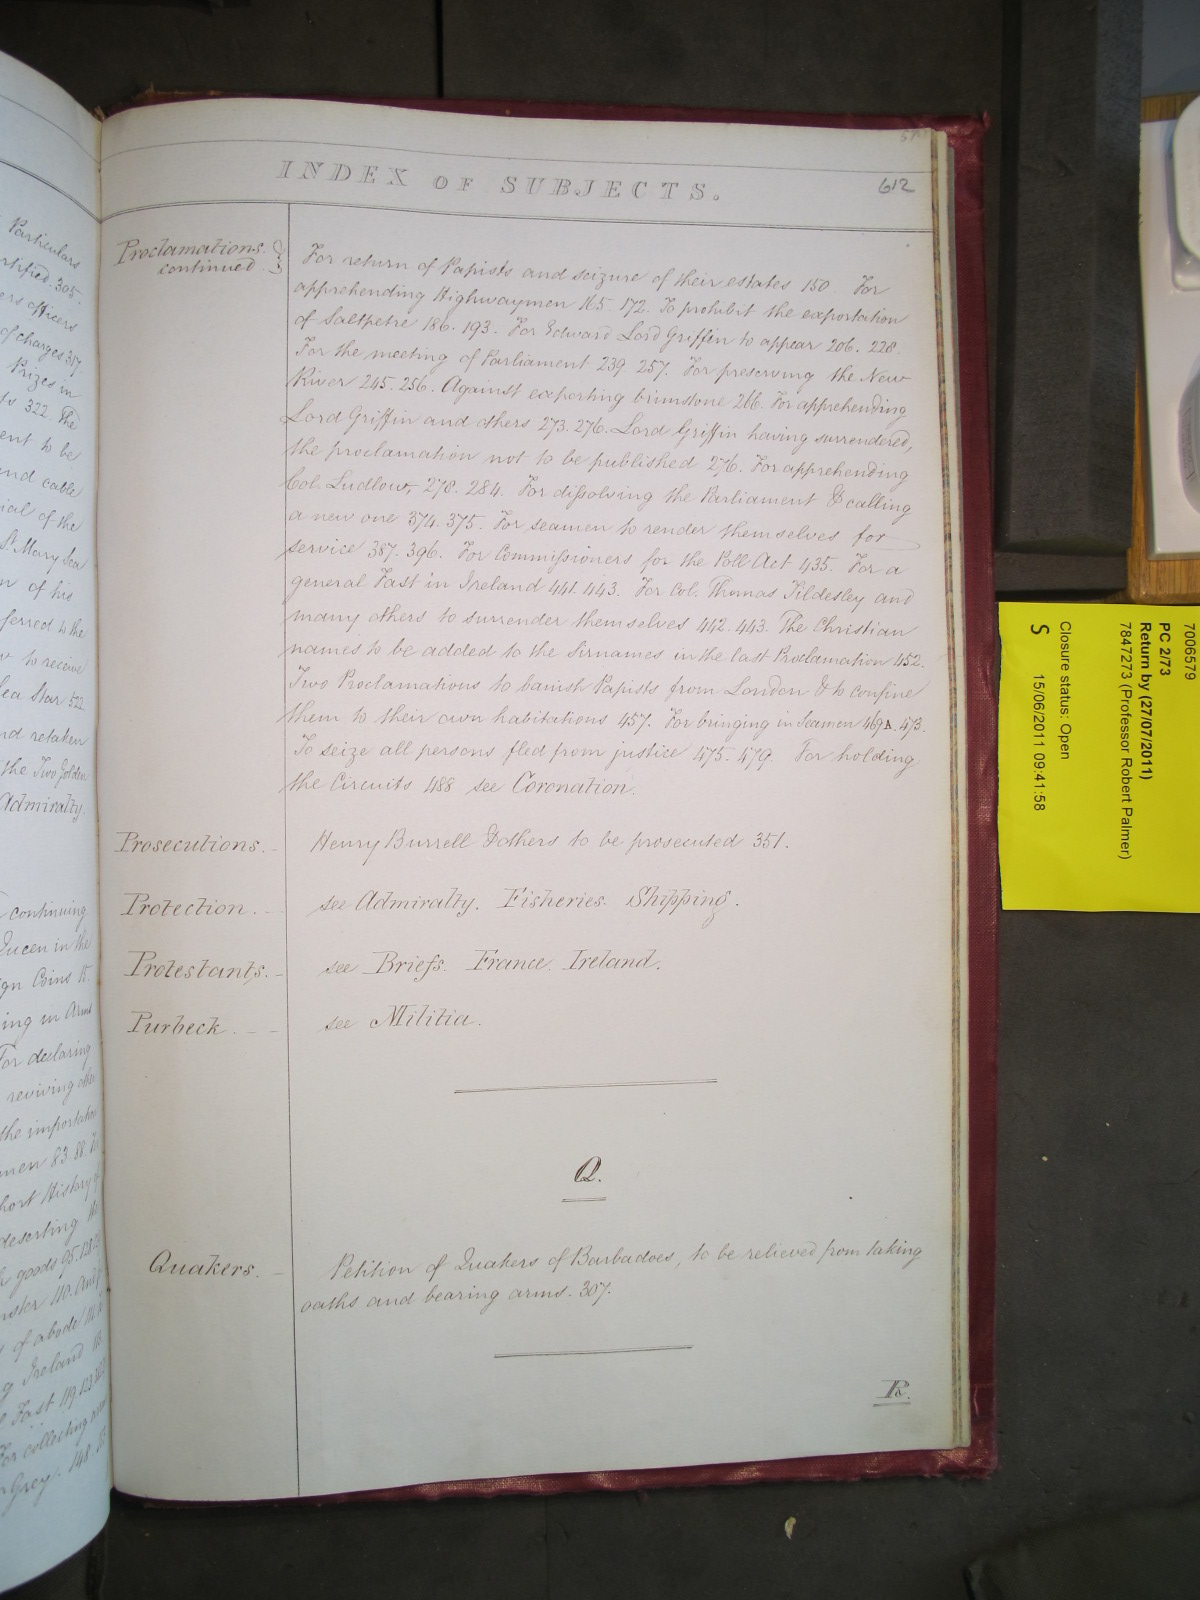 Particulars
305.
officers
of charges 317.
Prizes in
322. The
to be
and cable
of the
St. Mary Sea
of his
to the
to receive
Sea Star 522.
retaken
the Two Golden
Admiralty.
continuing
Queen in the
Coins 15.
in Arms
For declaring
reviving
the importation
83. 88.
Short History
deserting
goods 95.
of abode
Ireland
Fast 119.
For collecting
Grey. 148.
INDEX OF SUBJECTS.
612
Proclamations.
continued.
For return of Papists and seizure of their estates 150. For
apprehending Highwaymen 165. 172. To prohibit the exportation
of Saltpetre 186. 193. For Edward Lord Griffin to appear 206. 228
For the meeting of Parliament 239. 257. For preserving the New
River 245. 256. Against exporting brimstone 266. For apprehending
Lord Griffin and others 273. 276. Lord Griffin having surrendered,
the proclamation not to be published 276. For apprehending
Col. Ludlow, 278. 284. For dissolving the Parliament & calling
a new one 374. 375. For seamen to render themselves for
service 387. 396. For Commissioners for the Poll Act 435. For a
general Fast in Ireland 441. 443. For Col. Thomas Tildesley and
many others to surrender themselves 442. 443. The Christian
names to be added to the Sirnames in the last Proclamation 452.
Two Proclamations to banish Papists from London & to confine
them to their own habitations 457. For bringing in Seamen 469A. 473.
To seize all persons fled from justice 475. 479. For holding
the Circuits 488 see Coronation.
Prosecutions. - Henry Burrell & others to be prosecuted 351.
Protection. - see Admiralty. Fisheries. Shipping.
Protestants. - see Briefs. France. Ireland.
Purbeck. - - see Militia.
Q.
Quakers. - Petition of Quakers of Barbadoes, to be relieved from taking
oaths and bearing arms. 307.
R.
7006579
PC 2/73
Return by (27/07/2011)
7847273 (Professor Robert Palmer)
Closure status: Open
S 15/06/2011 09:41:58